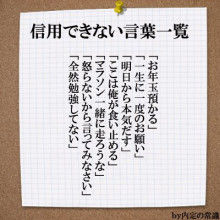 信用できない言葉一覧
「お年玉預かる」
「一生に一度のお願い」
「明日から本気だす」
「ここは俺が食い止める」
「マラソン一緒に走ろうな」
「怒らないから言ってみなさい」
「全然勉強してない」
by内定の常識